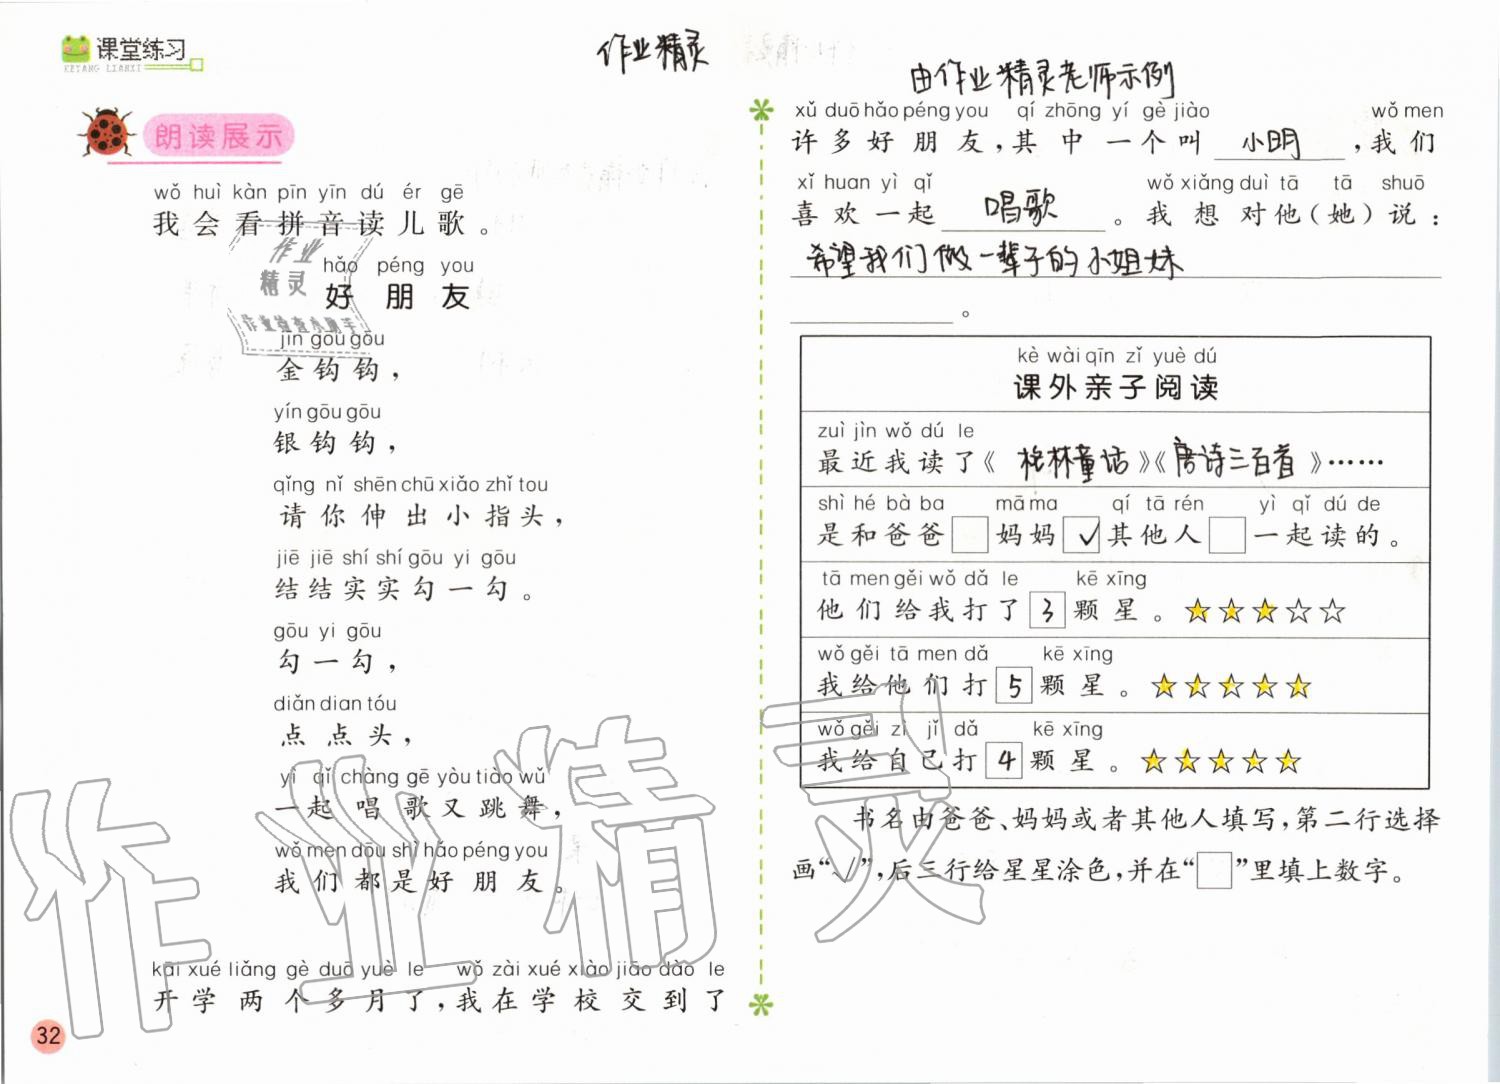 课堂练习
KETANG LIANXI
作业精灵
朗读展示
wǒ huì kàn pīn yīn dú ér gē
我会看拼音读儿歌。
作业
精灵
作业检查小助手
hǎo péng you
好朋友
jīn gōu gōu
金钩钩，
yín gōu gōu
银钩钩，
qǐng nǐ shēn chū xiǎo zhǐ tou
请你伸出小指头，
jiē jiē shí shí gōu yi gōu
结结实实勾一勾。
gōu yi gōu
勾一勾，
diǎn dian tóu
点点头，
yì qǐ chàng gē yòu tiào wǔ
一起唱歌又跳舞，
wǒ men dōu shì hǎo péng you
我们都是好朋友。
kāi xué liǎng gè duō yuè le wǒ zài xué xiào jiāo dào le
开学两个多月了，我在学校交到了
32
由作业精灵老师示例
xǔ duō hǎo péng you qí zhōng yí gè jiào wǒ men
许多好朋友，其中一个叫 小明 ，我们
xǐ huan yì qǐ wǒ xiǎng duì tā tā shuō
喜欢一起 唱歌 。我想对他（她）说：
希望我们做一辈子的小姐妹
。
kè wài qīn zǐ yuè dú
课外亲子阅读
zuì jìn wǒ dú le
最近我读了《格林童话》《唐诗三百首》……
shì hé bà ba mā ma qí tā rén yì qǐ dú de
是和爸爸□妈妈☑其他人□一起读的。
tā men gěi wǒ dǎ le kē xīng
他们给我打了 3 颗星。★★★☆☆
wǒ gěi tā men dǎ kē xīng
我给他们打 5 颗星。★★★★★
wǒ gěi zì jǐ dǎ kē xīng
我给自己打 4 颗星。★★★★★
书名由爸爸、妈妈或者其他人填写，第二行选择
画“√”，后三行给星星涂色，并在“□”里填上数字。
作业精灵